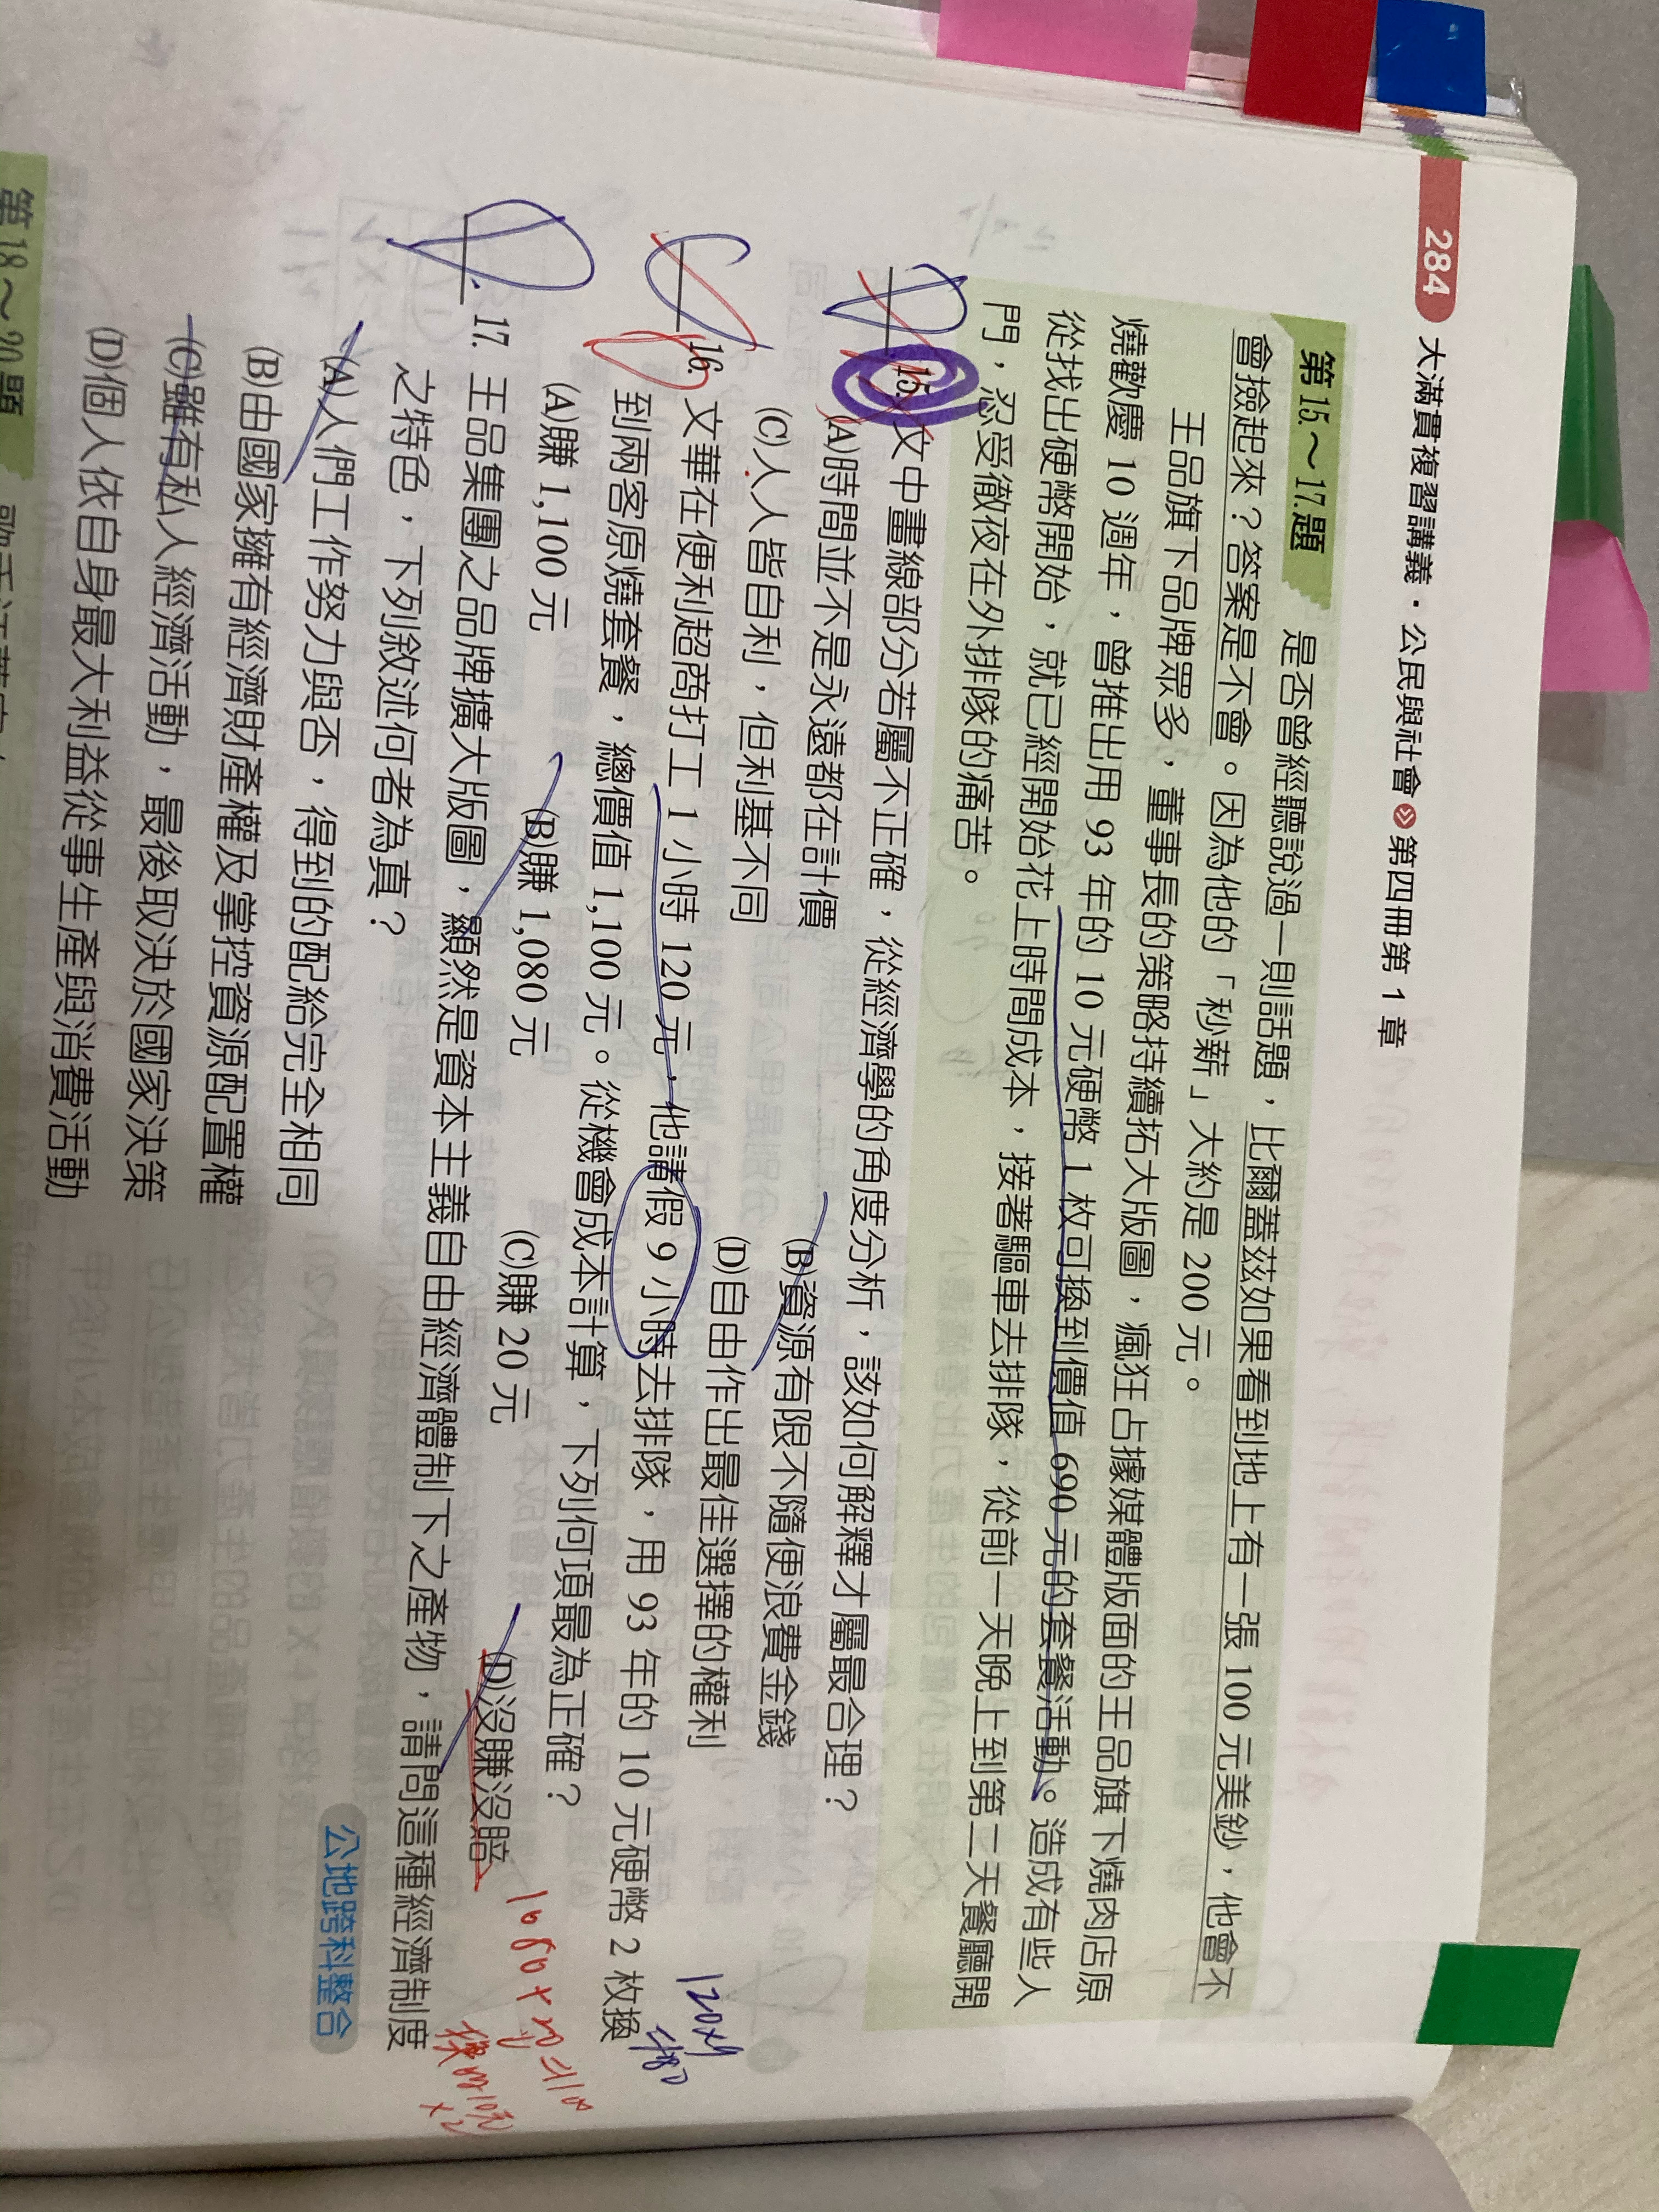 284 大滿貫複習講義・公民與社會 第四冊第 1 章
第 15.～17.題 是否曾經聽說過一則話題，比爾蓋茲如果看到地上有一張 100 元美鈔，他會不
會撿起來？答案是不會。因為他的「秒薪」大約是 200 元。
王品旗下品牌眾多，董事長的策略持續拓大版圖，瘋狂占據媒體版面的王品旗下燒肉店原
燒歡慶 10 週年，曾推出用 93 年的 10 元硬幣 1 枚可換到價值 690 元的套餐活動。造成有些人
從找出硬幣開始，就已經開始花上時間成本，接著驅車去排隊，從前一天晚上到第二天餐廳開
門，忍受徹夜在外排隊的痛苦。
15. 文中畫線部分若屬不正確，從經濟學的角度分析，該如何解釋才屬最合理？
(A)時間並不是永遠都在計價 (B)資源有限不隨便浪費金錢
(C)人人皆自利，但利基不同 (D)自由作出最佳選擇的權利
16. 文華在便利超商打工 1 小時 120 元，他請假 9 小時去排隊，用 93 年的 10 元硬幣 2 枚換
到兩客原燒套餐，總價值 1,100 元。從機會成本計算，下列何項最為正確？
(A)賺 1,100 元 (B)賺 1,080 元 (C)賺 20 元 (D)沒賺沒賠
120×9
1080+20=1100
換的10元
×2
17. 王品集團之品牌擴大版圖，顯然是資本主義自由經濟體制下之產物，請問這種經濟制度
之特色，下列敘述何者為真？
公地跨科整合
(A)人們工作努力與否，得到的配給完全相同
(B)由國家擁有經濟財產權及掌控資源配置權
(C)雖有私人經濟活動，最後取決於國家決策
(D)個人依自身最大利益從事生產與消費活動
第 18～20 題